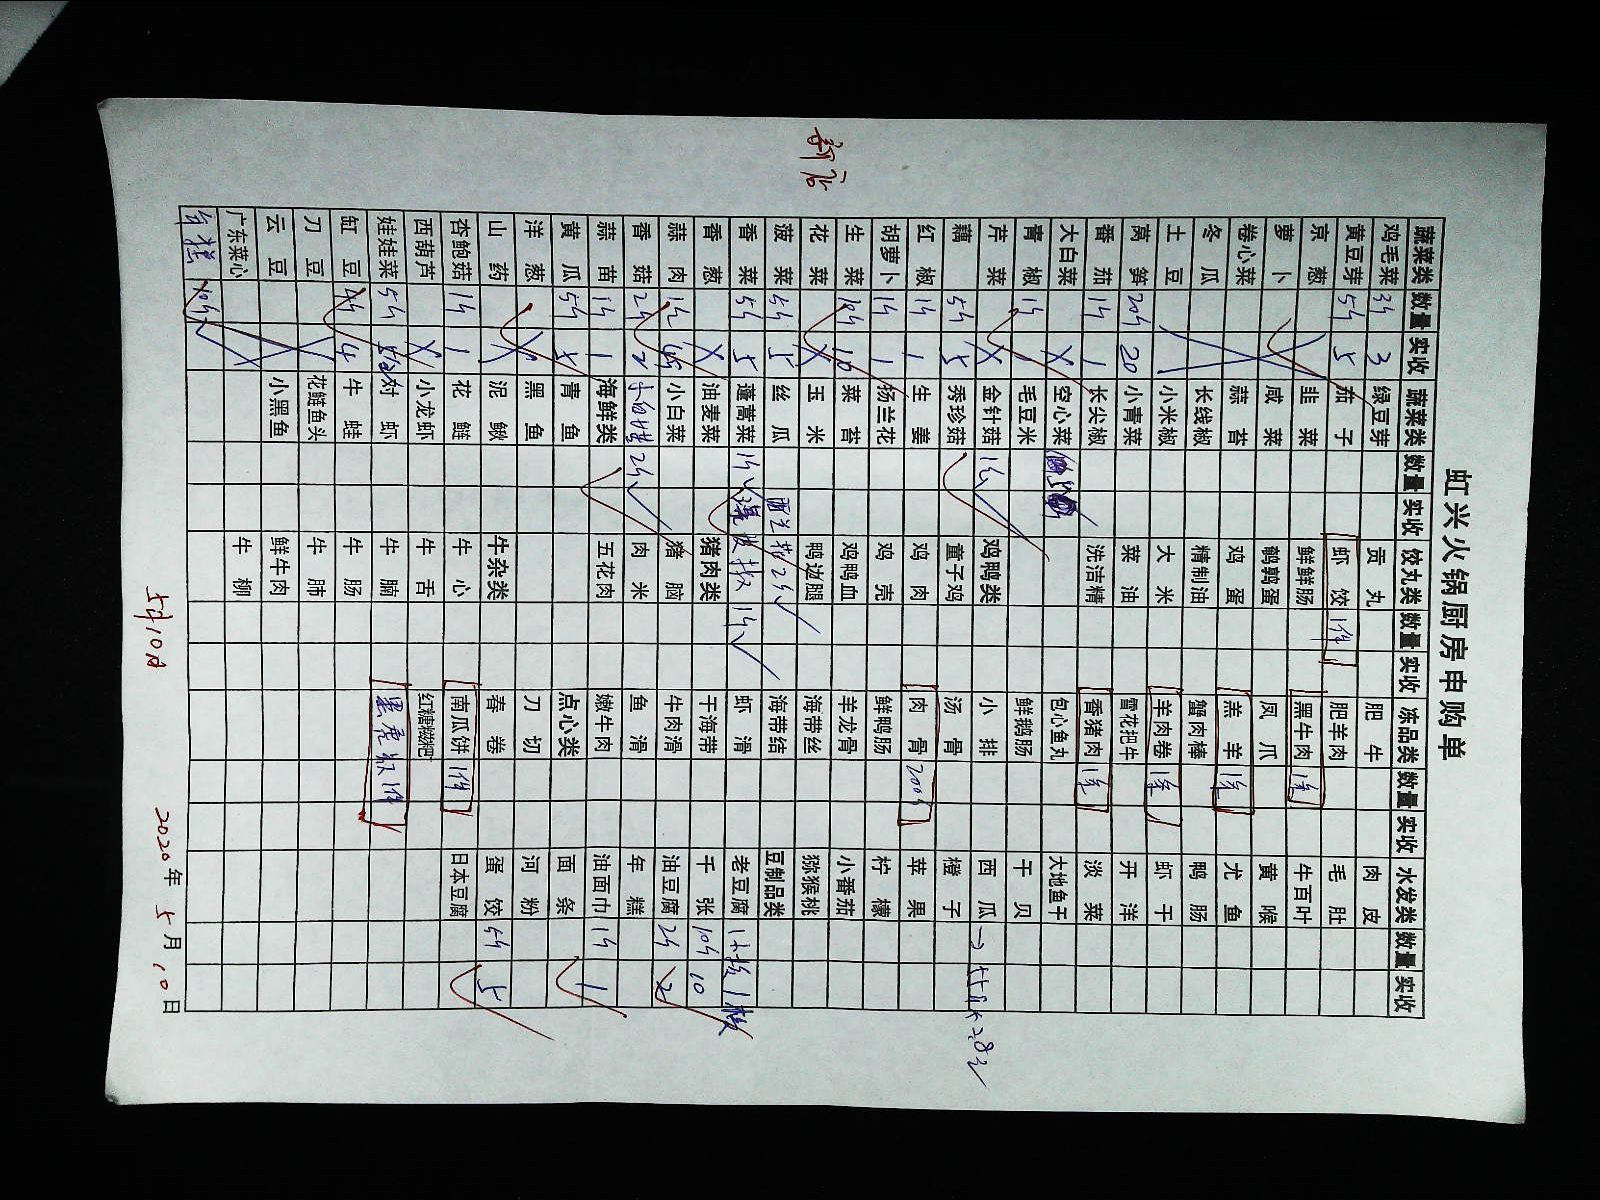 虹兴火锅厨房申购单
新店
蔬菜类 数量 实收 蔬菜类 数量 实收 饺丸类 数量 实收 冻品类 数量 实收 水发类 数量 实收
鸡毛菜 3斤 3 绿豆芽 贡丸 肥牛 肉皮
黄豆芽 5斤 5 茄子 虾饺 1件 肥羊肉 毛肚
京葱 韭菜 鲜鲜肠 黑牛肉 牛百叶
萝卜 咸菜 鹌鹑蛋 凤爪 黄喉
卷心菜 蒜苔 鸡蛋 羔羊 尤鱼
冬瓜 长线椒 精制油 蟹肉棒 鸭肠
土豆 小米椒 大米 羊肉卷 虾干
莴笋 20斤 20 小青菜 菜油 雪花把牛 开洋
番茄 1斤 1 长尖椒 洗洁精 香猪肉 淡菜
大白菜 空心菜 包心鱼丸 大地鱼干
青椒 1斤 1 毛豆米 鲜鹅肠 干贝
芹菜 金针菇 1斤 鸡鸭类 小排 西瓜
藕 5斤 5 秀珍菇 童子鸡 汤骨 橙子
红椒 1斤 1 生姜 鸡肉 肉骨 200斤 苹果
胡萝卜 1斤 1 杨兰花 鸡壳 鲜鸭肠 柠檬
生菜 10斤 10 菜苔 鸡鸭血 羊龙骨 小番茄
花菜 玉米 鸭边腿 海带丝 猕猴桃
菠菜 5斤 5 丝瓜 海带结 豆制品类
香菜 5斤 5 蓬蒿菜 1斤 虾滑 老豆腐 1板
香葱 油麦菜 猪肉类 干海带 千张 10斤 10
蒜肉 1斤 小白菜 猪脑 牛肉滑 油豆腐 2斤 2
香菇 2斤 2 2斤 肉米 鱼滑 年糕
蒜苗 1斤 1 海鲜类 五花肉 嫩牛肉 油面巾 1斤 1
黄瓜 5斤 5 青鱼 点心类 面条
洋葱 黑鱼 刀切 河粉
山药 泥鳅 牛杂类 春卷 蛋饺 5斤 5
杏鲍菇 1斤 1 花鲢 牛心 南瓜饼 1件 日本豆腐
西葫芦 小龙虾 牛舌 红糖糍粑
娃娃菜 5斤 对虾 牛腩 1件
缸豆 4斤 4 牛蛙 牛肠
刀豆 花鲢鱼头 牛肺
云豆 小黑鱼 鲜牛肉
广东菜心 牛柳
年糕 10斤
5月10日
2020年5月10日